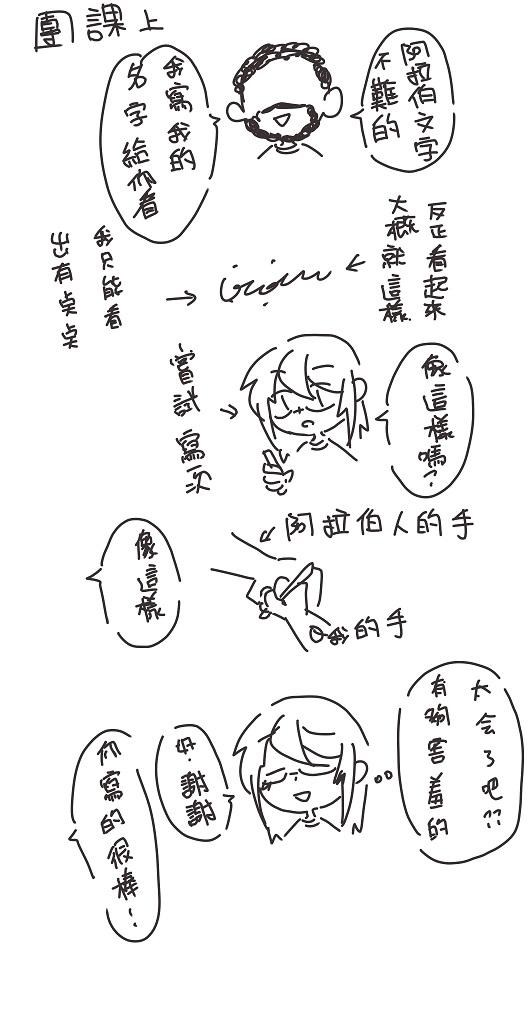 團課上
阿拉伯文字
不難的
我寫我的
名字給你看
反正看起來
大概就這樣
我只能看
出有桌桌
像這樣嗎?
嘗試寫次
阿拉伯人的手
像這樣
我的手
太会了吧??
有夠害羞的
好.謝謝
你寫的很棒!